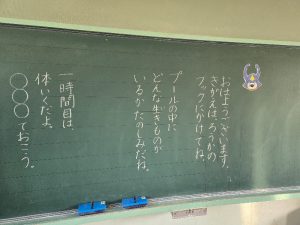 おはようございます。
きがえは、ろうかの
フックにかけてね。
プールの中に
どんな生きものが
いるかたのしみだね。
一時間目は、
体いくだよ。
○○○ておこう。